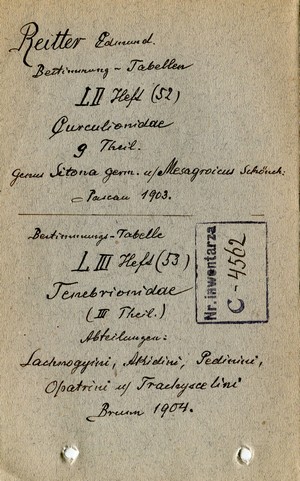 Reitter Edmund.
Bestimmung-Tabellen
LII Heft (52)
Curculionidae
9 Theil.
genus Sitona germ. u/ Mesagroicus Schönh:
= Pascau 1903.
Bestimmungs-Tabelle
LIII Heft (53)
Tenebrionidae
(III Theil.)
Abteilungen:
Lachnogyini, Akidini, Pedinini,
Opatrini u/ Trachyscelini
Brunn 1904.
Nr. inwentarza
C-4562